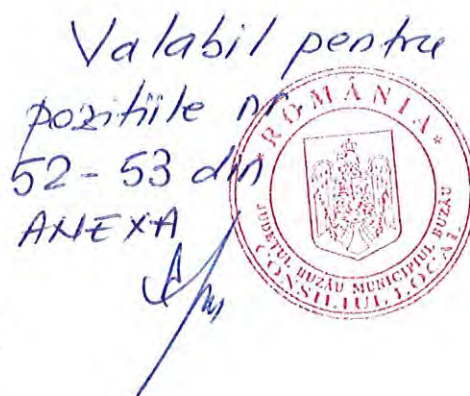 Valabil pentru
pozitiile nr
52-53 din
ANEXA
* ROMÂNIA *
JUDEŢUL BUZĂU MUNICIPIUL BUZĂU
CONSILIUL LOCAL